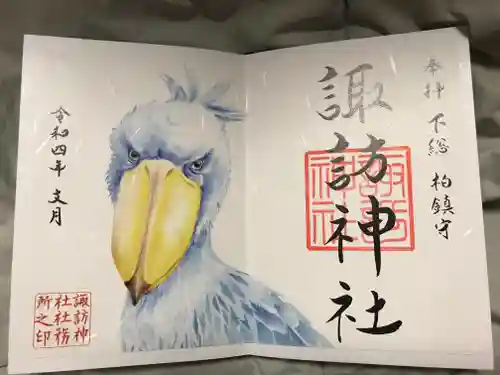 奉拝 下総 柏鎮守
諏訪神社
諏訪神社
令和四年 文月
諏訪神
社社務
所之印